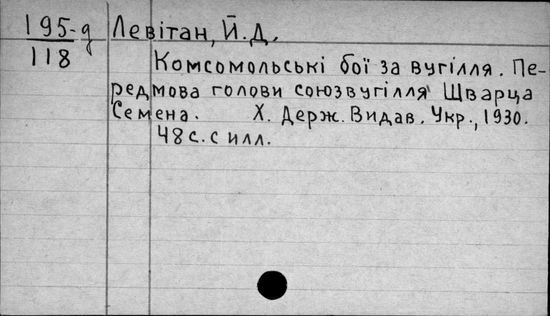 195-д Левітан, Й.Д.
118
Комсомольські бої за вугілля. Пе-
редмова голови союзвугілля Шварца
Семена. Х. Держ. Видав. Укр., 1930.
48 с. с илл.